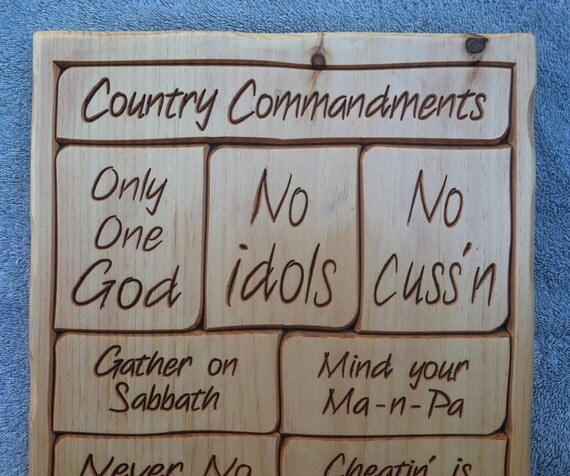 Country Commandments
Only
One
God
No
idols
No
cuss'n
Gather on
Sabbath
Mind your
Ma-n-Pa
Never No
Cheatin' is